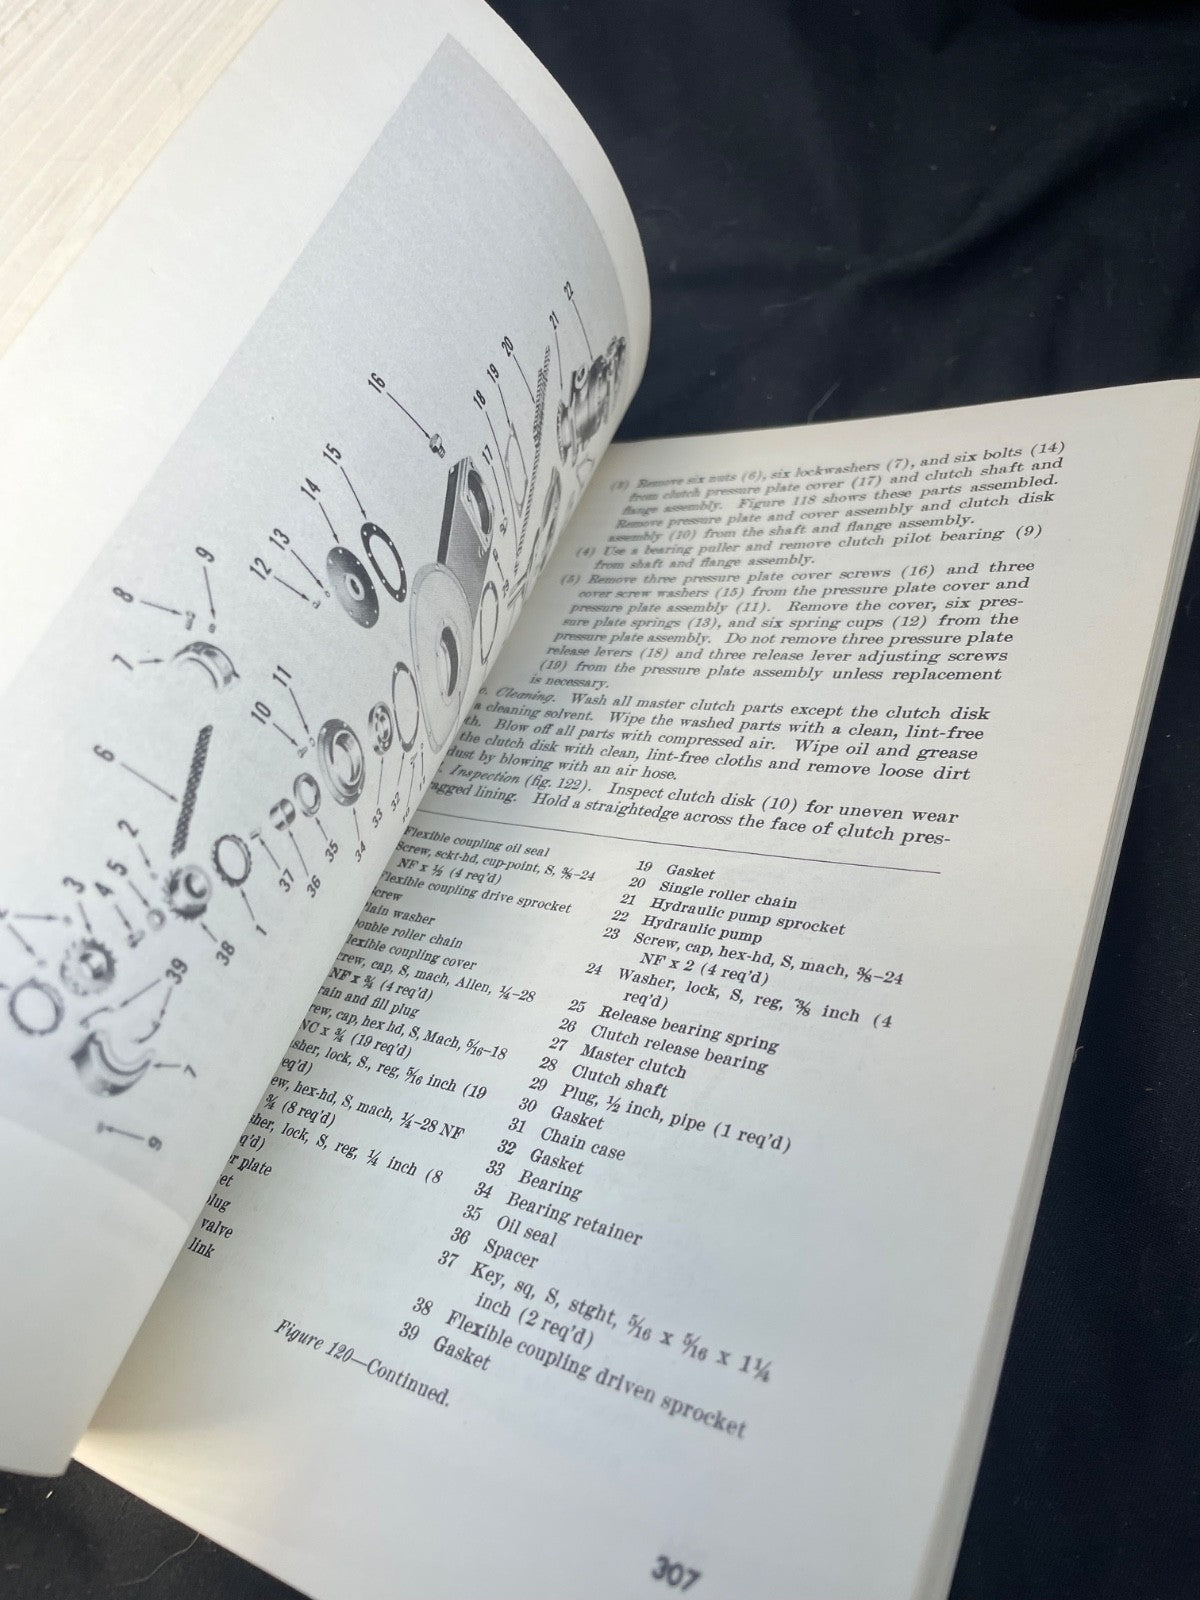 16
15
14
13
12
9
8
7
11
10
6
2
5
4
3
22
21
20
19
18
17
33
32
34
35
36
37
1
38
39
7
9
(3) Remove six nuts (6), six lockwashers (7), and six bolts (14)
from clutch pressure plate cover (17) and clutch shaft and
flange assembly. Figure 118 shows these parts assembled.
Remove pressure plate and cover assembly and clutch disk
assembly (10) from the shaft and flange assembly.
(4) Use a bearing puller and remove clutch pilot bearing (9)
from shaft and flange assembly.
(5) Remove three pressure plate cover screws (16) and three
cover screw washers (15) from the pressure plate cover and
pressure plate assembly (11). Remove the cover, six pres-
sure plate springs (13), and six spring cups (12) from the
pressure plate assembly. Do not remove three pressure plate
release levers (18) and three release lever adjusting screws
(19) from the pressure plate assembly unless replacement
is necessary.
c. Cleaning. Wash all master clutch parts except the clutch disk
a cleaning solvent. Wipe the washed parts with a clean, lint-free
th. Blow off all parts with compressed air. Wipe oil and grease
the clutch disk with clean, lint-free cloths and remove loose dirt
dust by blowing with an air hose.
. Inspection (fig. 122). Inspect clutch disk (10) for uneven wear
agged lining. Hold a straightedge across the face of clutch pres-
Flexible coupling oil seal
Screw, sckt-hd, cup-point, S, 3/8–24
NF x 1/2 (4 req'd)
Flexible coupling drive sprocket
Screw
lain washer
ouble roller chain
lexible coupling cover
crew, cap, S, mach, Allen, 1/4–28
NF x 3/4 (4 req'd)
rain and fill plug
rew, cap, hex hd, S, Mach, 5/16–18
NC x 3/4 (19 req'd)
sher, lock, S., reg, 5/16 inch (19
eq'd)
ew, hex-hd, S, mach, 1/4–28 NF
3/4 (8 req'd)
sher, lock, S, reg, 1/4 inch (8
q'd)
r plate
et
plug
valve
link
19 Gasket
20 Single roller chain
21 Hydraulic pump sprocket
22 Hydraulic pump
23 Screw, cap, hex-hd, S, mach, 3/8–24
NF x 2 (4 req'd)
24 Washer, lock, S, reg, 3/8 inch (4
req'd)
25 Release bearing spring
26 Clutch release bearing
27 Master clutch
28 Clutch shaft
29 Plug, 1/2 inch, pipe (1 req'd)
30 Gasket
31 Chain case
32 Gasket
33 Bearing
34 Bearing retainer
35 Oil seal
36 Spacer
37 Key, sq, S, stght, 5/16 x 5/16 x 1 1/4
inch (2 req'd)
38 Flexible coupling driven sprocket
39 Gasket
Figure 120—Continued.
307